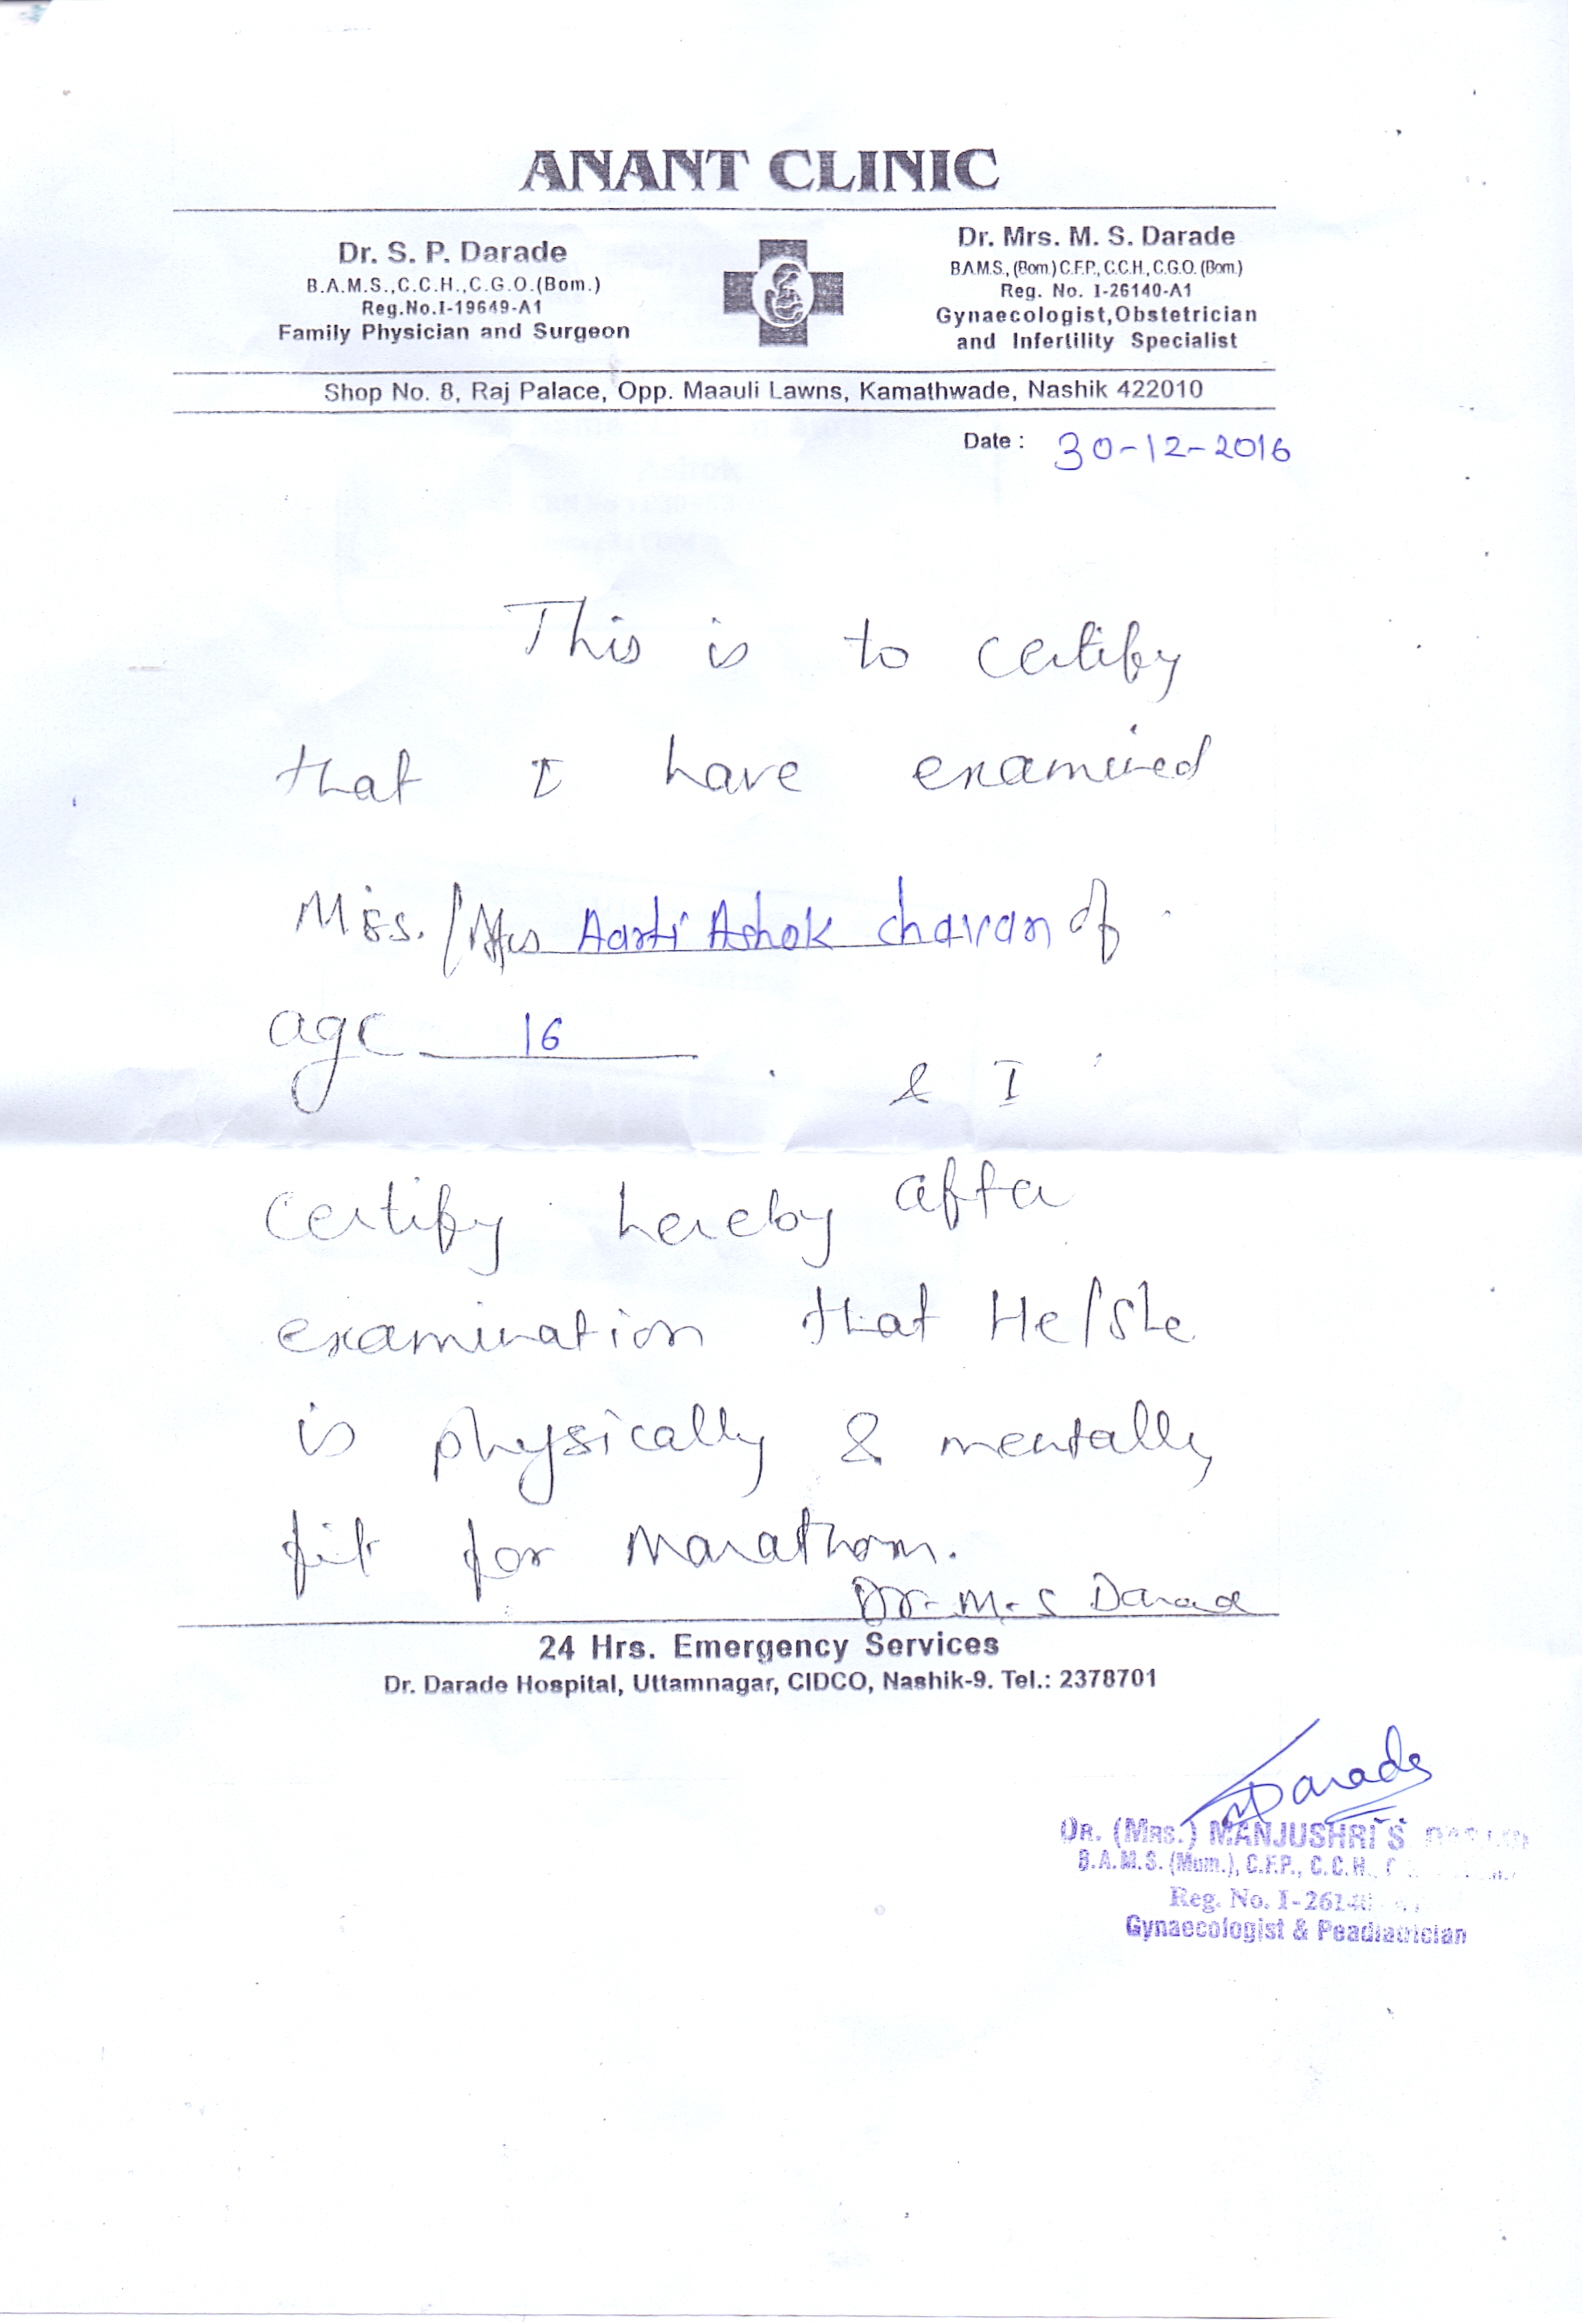 ANANT CLINIC
Dr. S. P. Darade
B.A.M.S.,C.C.H.,C.G.O.(Bom.)
Reg.No.I-19649-A1
Family Physician and Surgeon
Dr. Mrs. M. S. Darade
B.A.M.S., (Bom.) C.F.P., C.C.H., C.G.O. (Bom.)
Reg. No. I-26140-A1
Gynaecologist,Obstetrician
and Infertility Specialist
Shop No. 8, Raj Palace, Opp. Maauli Lawns, Kamathwade, Nashik 422010
Date : 30-12-2016
This is to certify
that I have examined
Miss./Mrs Aarti Ashok chavan of
age 16
& I
certify hereby after
examination that He/She
is physically & mentally
fit for Marathon.
Dr. M. S Darade
24 Hrs. Emergency Services
Dr. Darade Hospital, Uttamnagar, CIDCO, Nashik-9. Tel.: 2378701
Darade
DR. (MRS.) MANJUSHRI S
B.A.M.S. (Mum.), C.F.P., C.C.H.
Reg. No. I-26140
Gynaecologist & Peadiatrician